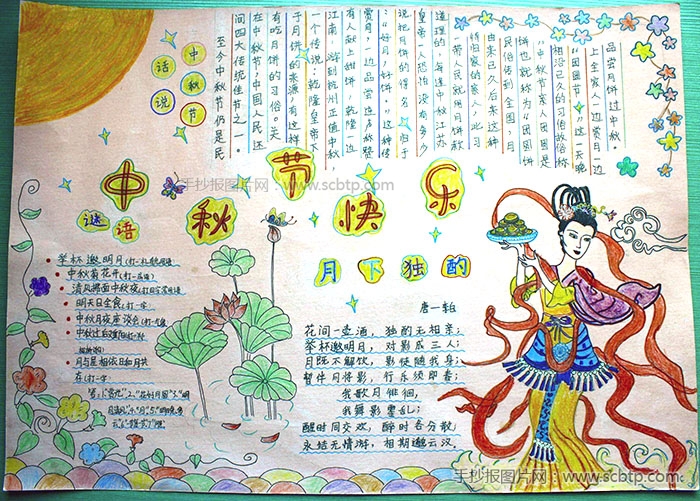 中秋节
话说
至今中秋节仍是民
间四大传统佳节之一
在中秋节，中国人民还
有吃月饼的习俗。关
于月饼的来源，有这样
一个传说：乾隆皇帝下
江南，游到杭州正值中秋
有人献上甜饼，乾隆一边
赏月，一边品尝连声称赞
“好月！好饼。”这种传
说把月饼的得名，归于
皇帝一人恐怕没有多少
道理的。每逢中秋江苏
带人民就用月饼款
待归家的亲人，此习
由来已久后来这种
民俗传到全国，月
饼也就称为“团圆饼
“中秋节家人团圆是
相沿已久的习俗故俗称
“团圆节”。这一天晚
上全家人一边赏月一边
品尝月饼过中秋。
中秋节快乐
手抄报图片网：www.scbtp.com
谜语
举杯邀明月(打一礼貌用语
中秋菊花开(打一成语)
清风拂面中秋夜(打日常用语
明天日全食(打一字
中秋月夜座谈会(打一
月与星相依日和月共
在(打一字
月下独酌
唐一李白
花间一壶酒，独酌无相亲；
举杯邀明月，对影成三人；
月既不解饮，影徒随我身；
暂伴月将影，行乐须即春；
我歌月徘徊，
我舞影零乱；
醒时同交欢，醉时各分散，
永结无情游，相期邈云汉。
手抄报图片网：www.scbtp.com